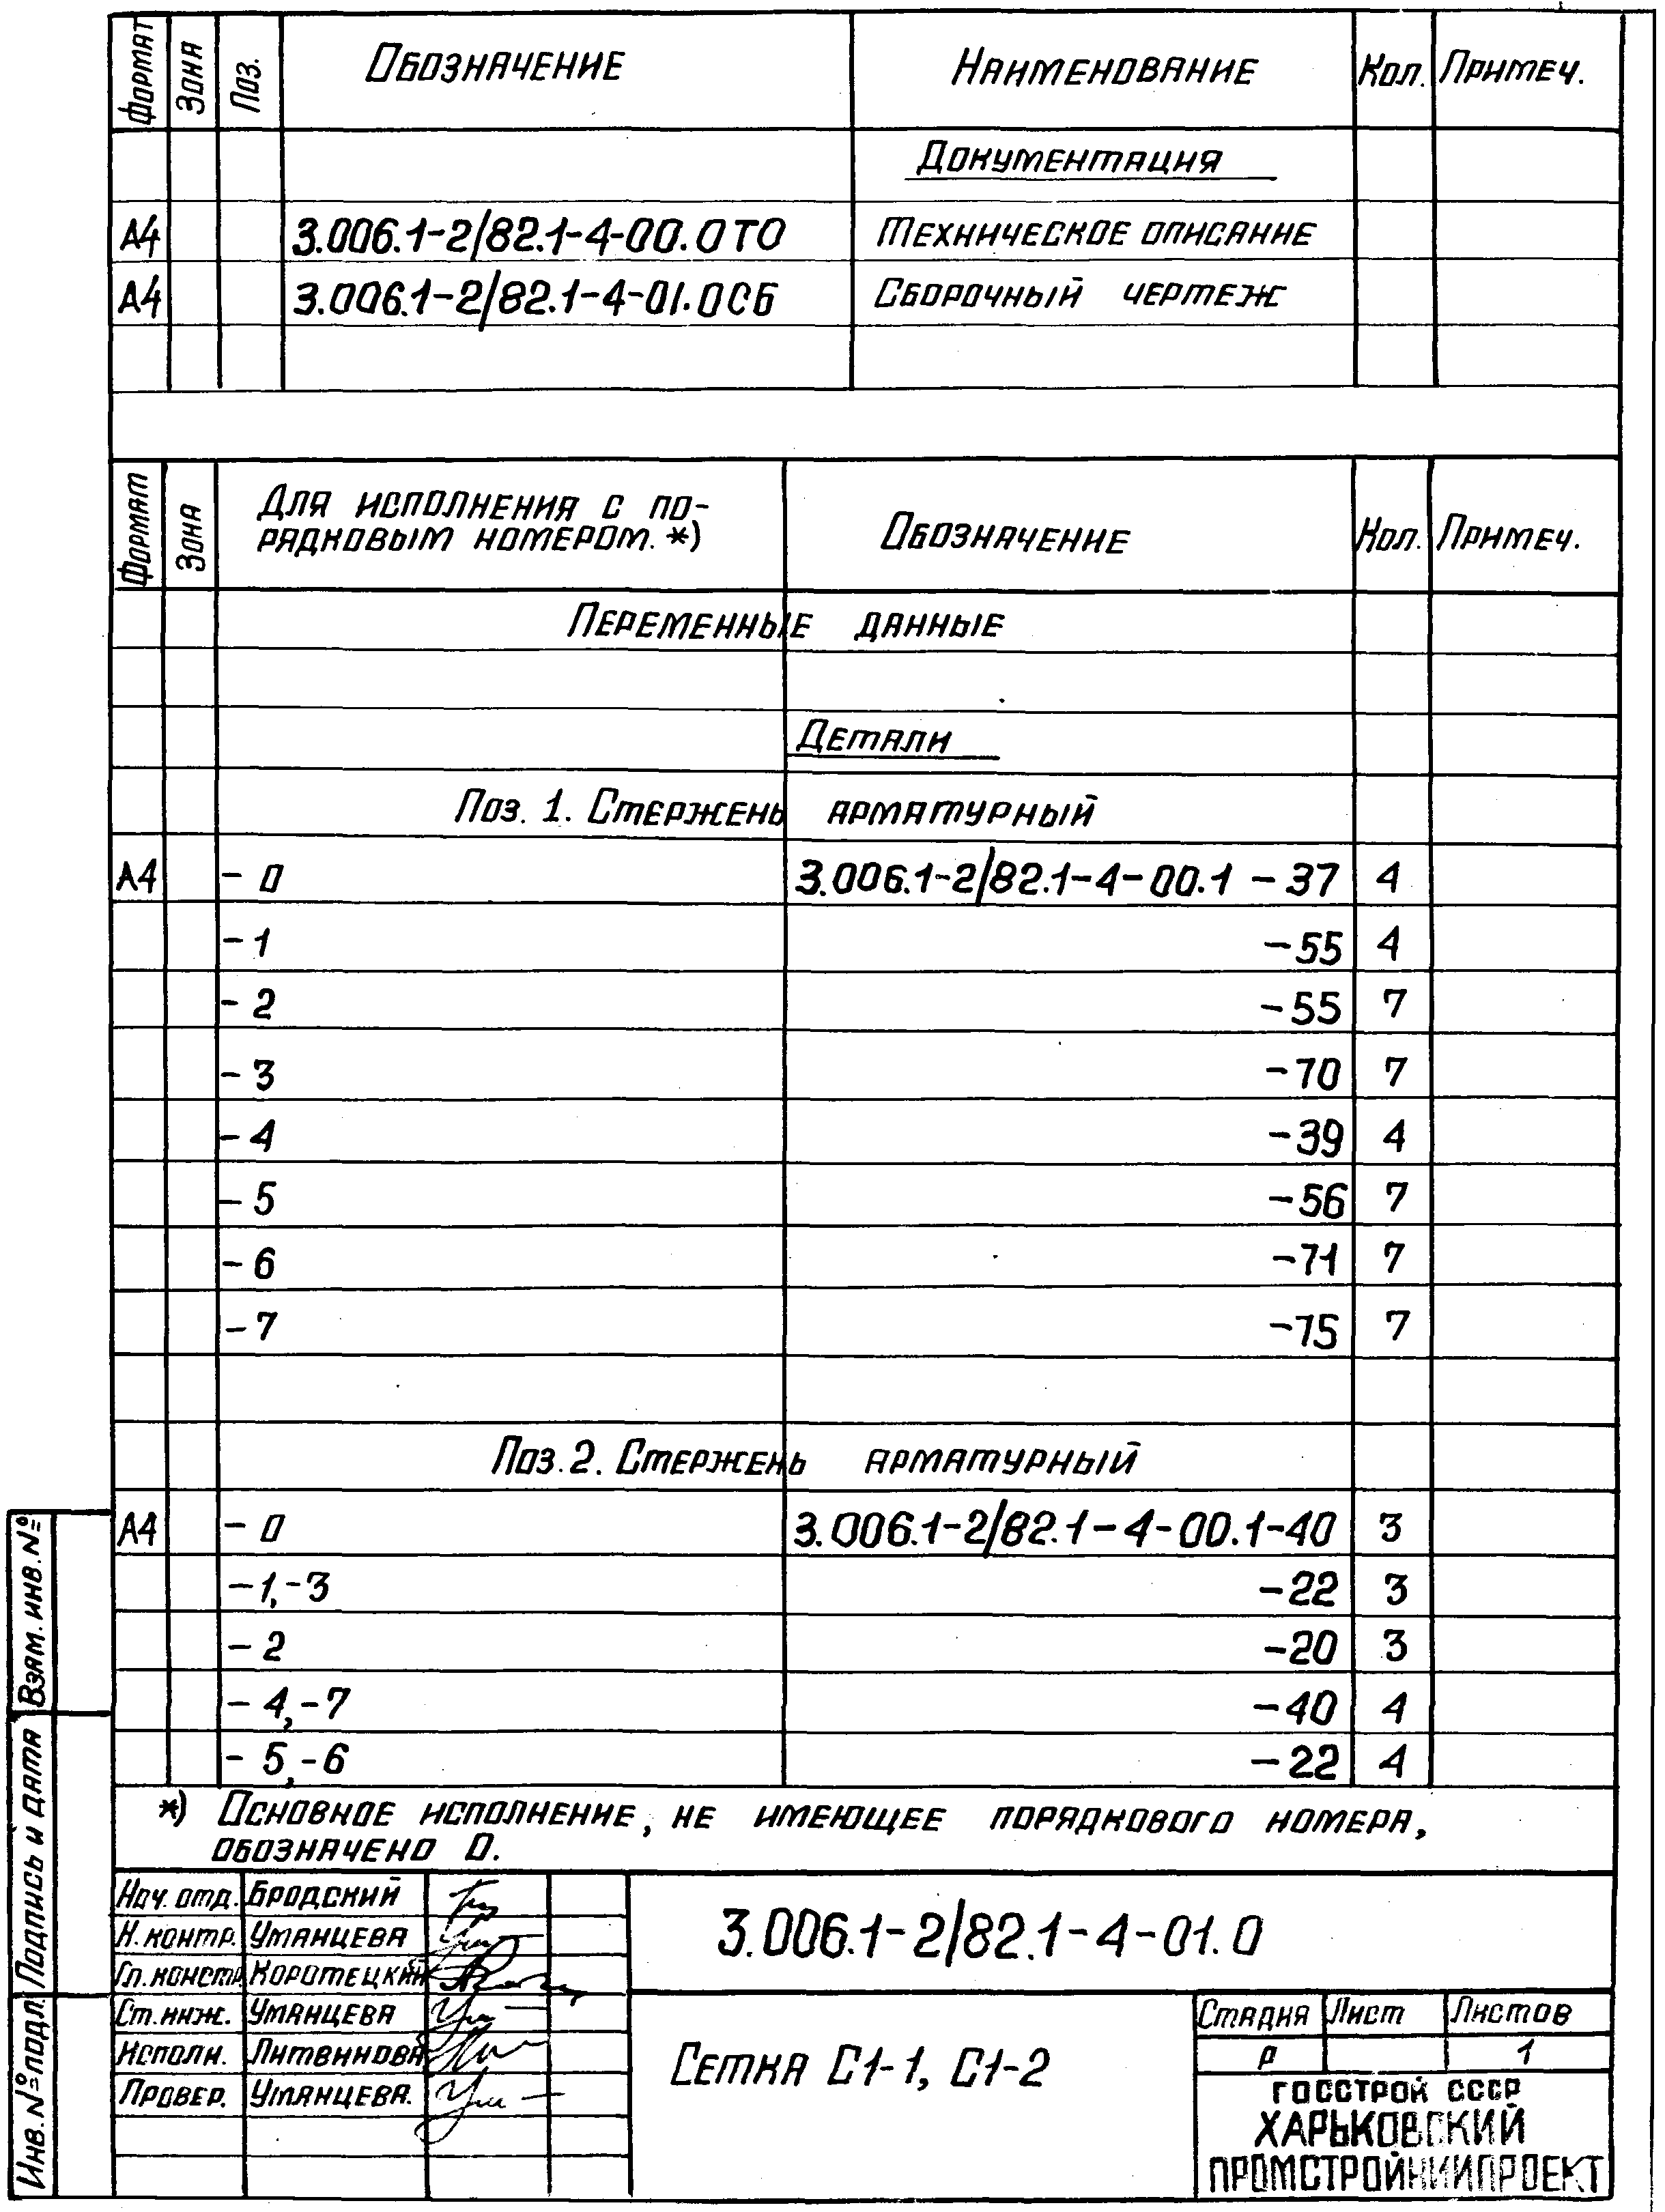 Формат Зона Поз. Обозначение Наименование Кол. Примеч.
Документация
А4 3.006.1-2/82.1-4-00.0ТО Техническое описание
А4 3.006.1-2/82.1-4-01.0СБ Сборочный чертеж
Формат Зона Для исполнения с по- Обозначение Кол. Примеч.
рядковым номером.*)
Переменные данные
Детали
Поз. 1. Стержень арматурный
А4 - 0 3.006.1-2/82.1-4-00.1 - 37 4
- 1 - 55 4
- 2 - 55 7
- 3 - 70 7
- 4 - 39 4
- 5 - 56 7
- 6 - 71 7
- 7 - 75 7
Поз. 2. Стержень арматурный
А4 - 0 3.006.1-2/82.1-4-00.1-40 3
- 1, - 3 - 22 3
- 2 - 20 3
- 4, - 7 - 40 4
- 5, - 6 - 22 4
*) Основное исполнение, не имеющее порядкового номера,
обозначено 0.
Взам. инв. №
Подпись и дата
Инв. № подл.
Нач. отд. Бродский
Н. контр. Уманцева
Гл. констр. Коротецкий
Ст. инж. Уманцева
Исполн. Литвинова
Провер. Уманцева.
3.006.1-2/82.1-4-01.0
Сетка С1-1, С1-2
Стадия Лист Листов
Р 1
ГОССТРОЙ СССР
ХАРЬКОВСКИЙ
ПРОМСТРОЙНИИПРОЕКТ